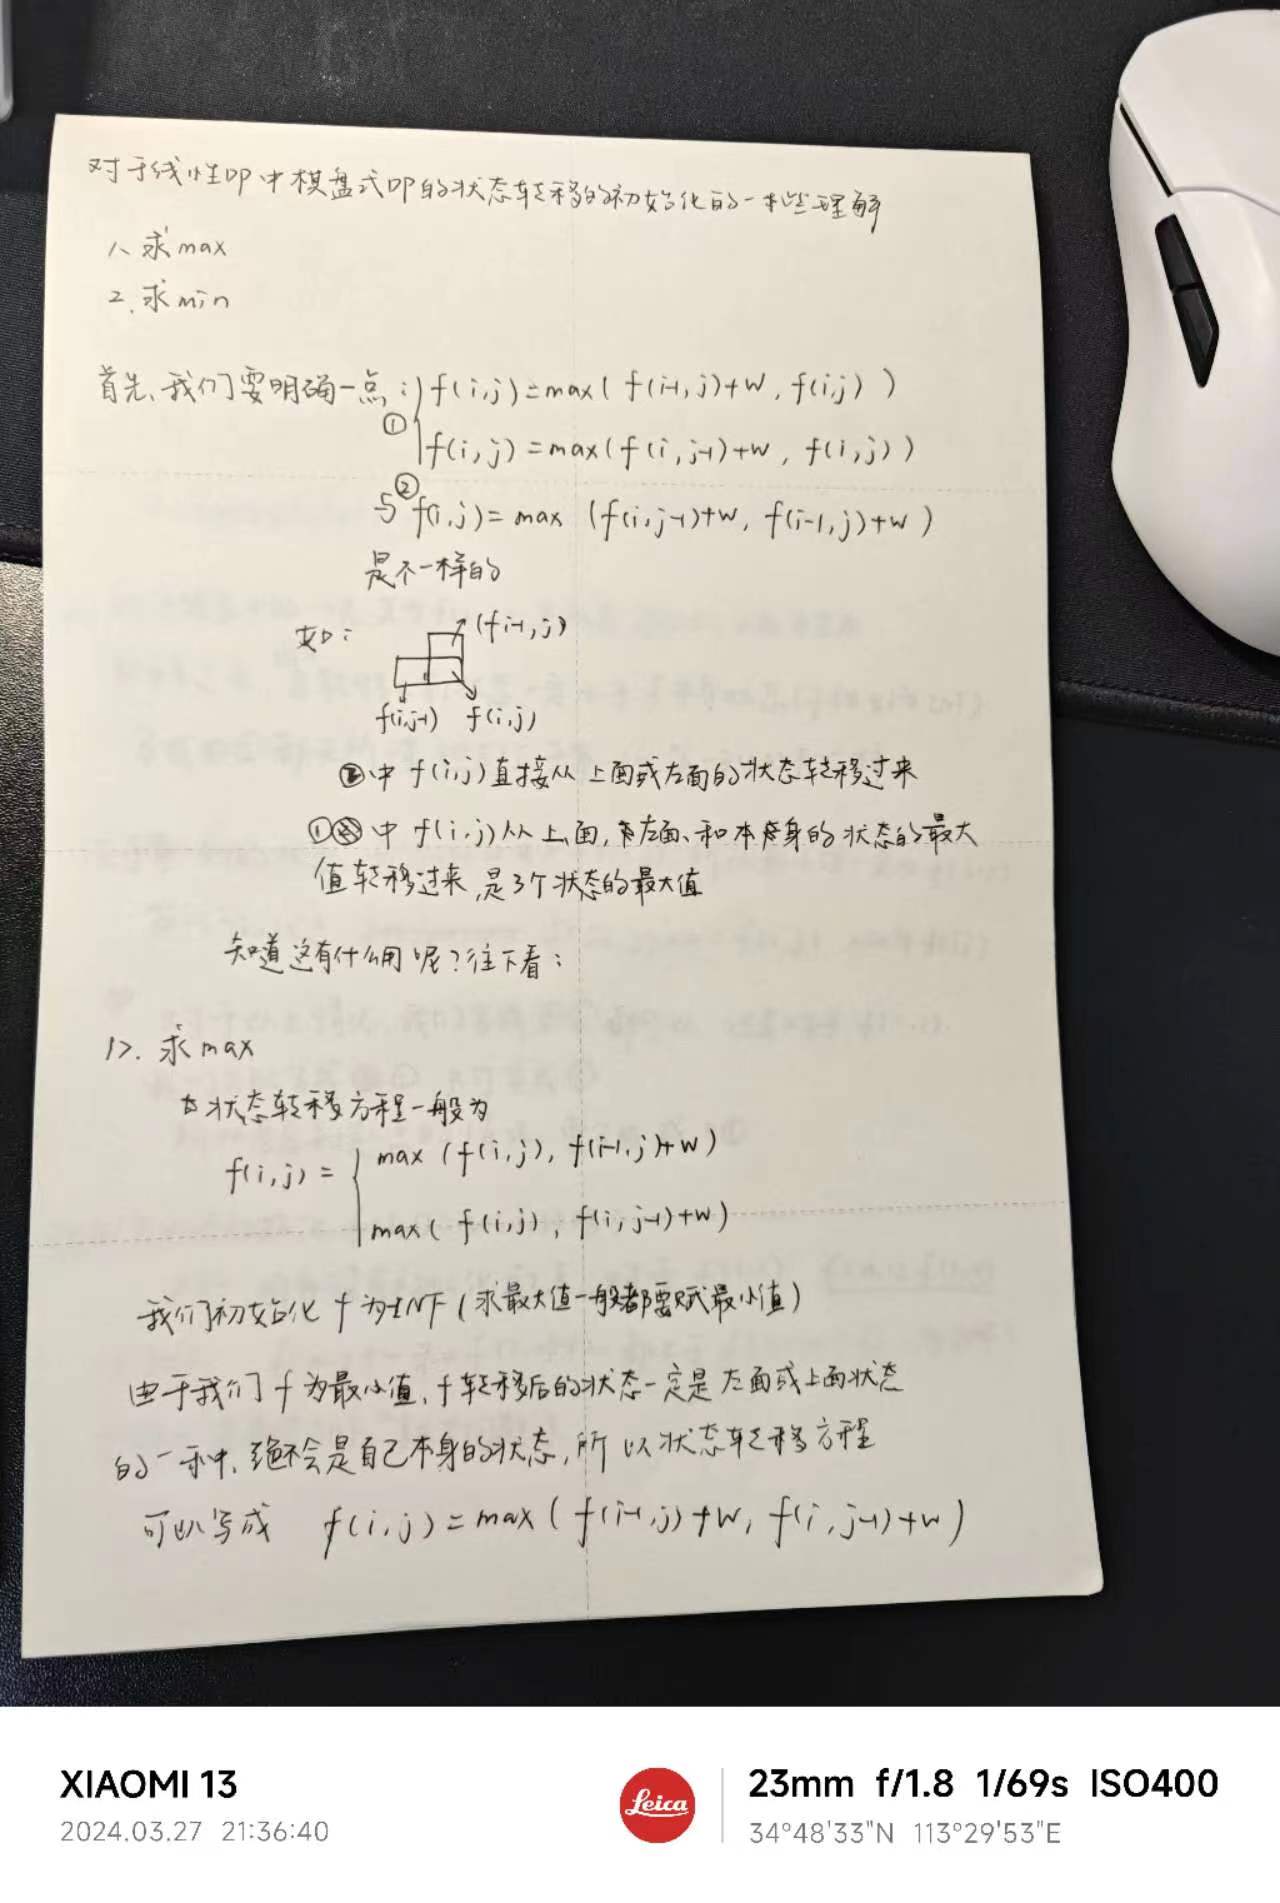 对于线性DP中棋盘式DP的状态转移的初始化的一些理解
1、求max
2.求min
首先、我们要明确一点:f(i,j)=max(f(i-1,j)+w,f(i,j))
① f(i,j)=max(f(i,j-1)+w,f(i,j))
与②f(i,j)=max(f(i,j-1)+w,f(i-1,j)+w)
是不一样的
如:
(fi-1,j)
f(i,j-1) f(i,j)
②中f(i,j)直接从上面或左面的状态转移过来
①中f(i,j)从上面,左面、和本身的状态的最大
值转移过来,是3个状态的最大值
知道这有什么用呢?往下看:
1>.求max
状态转移方程一般为
f(i,j)= max(f(i,j),f(i-1,j)+w)
max(f(i,j),f(i,j-1)+w)
我们初始化f为-INF(求最大值一般都要赋最小值)
由于我们f为最小值,f转移后的状态一定是左面或上面状态
的一种,绝不会是自己本身的状态,所以状态转移方程
可以写成 f(i,j)=max(f(i-1,j)+w,f(i,j-1)+w)
XIAOMI 13
2024.03.27 21:36:40
Leica
23mm f/1.8 1/69s ISO400
34°48'33"N 113°29'53"E